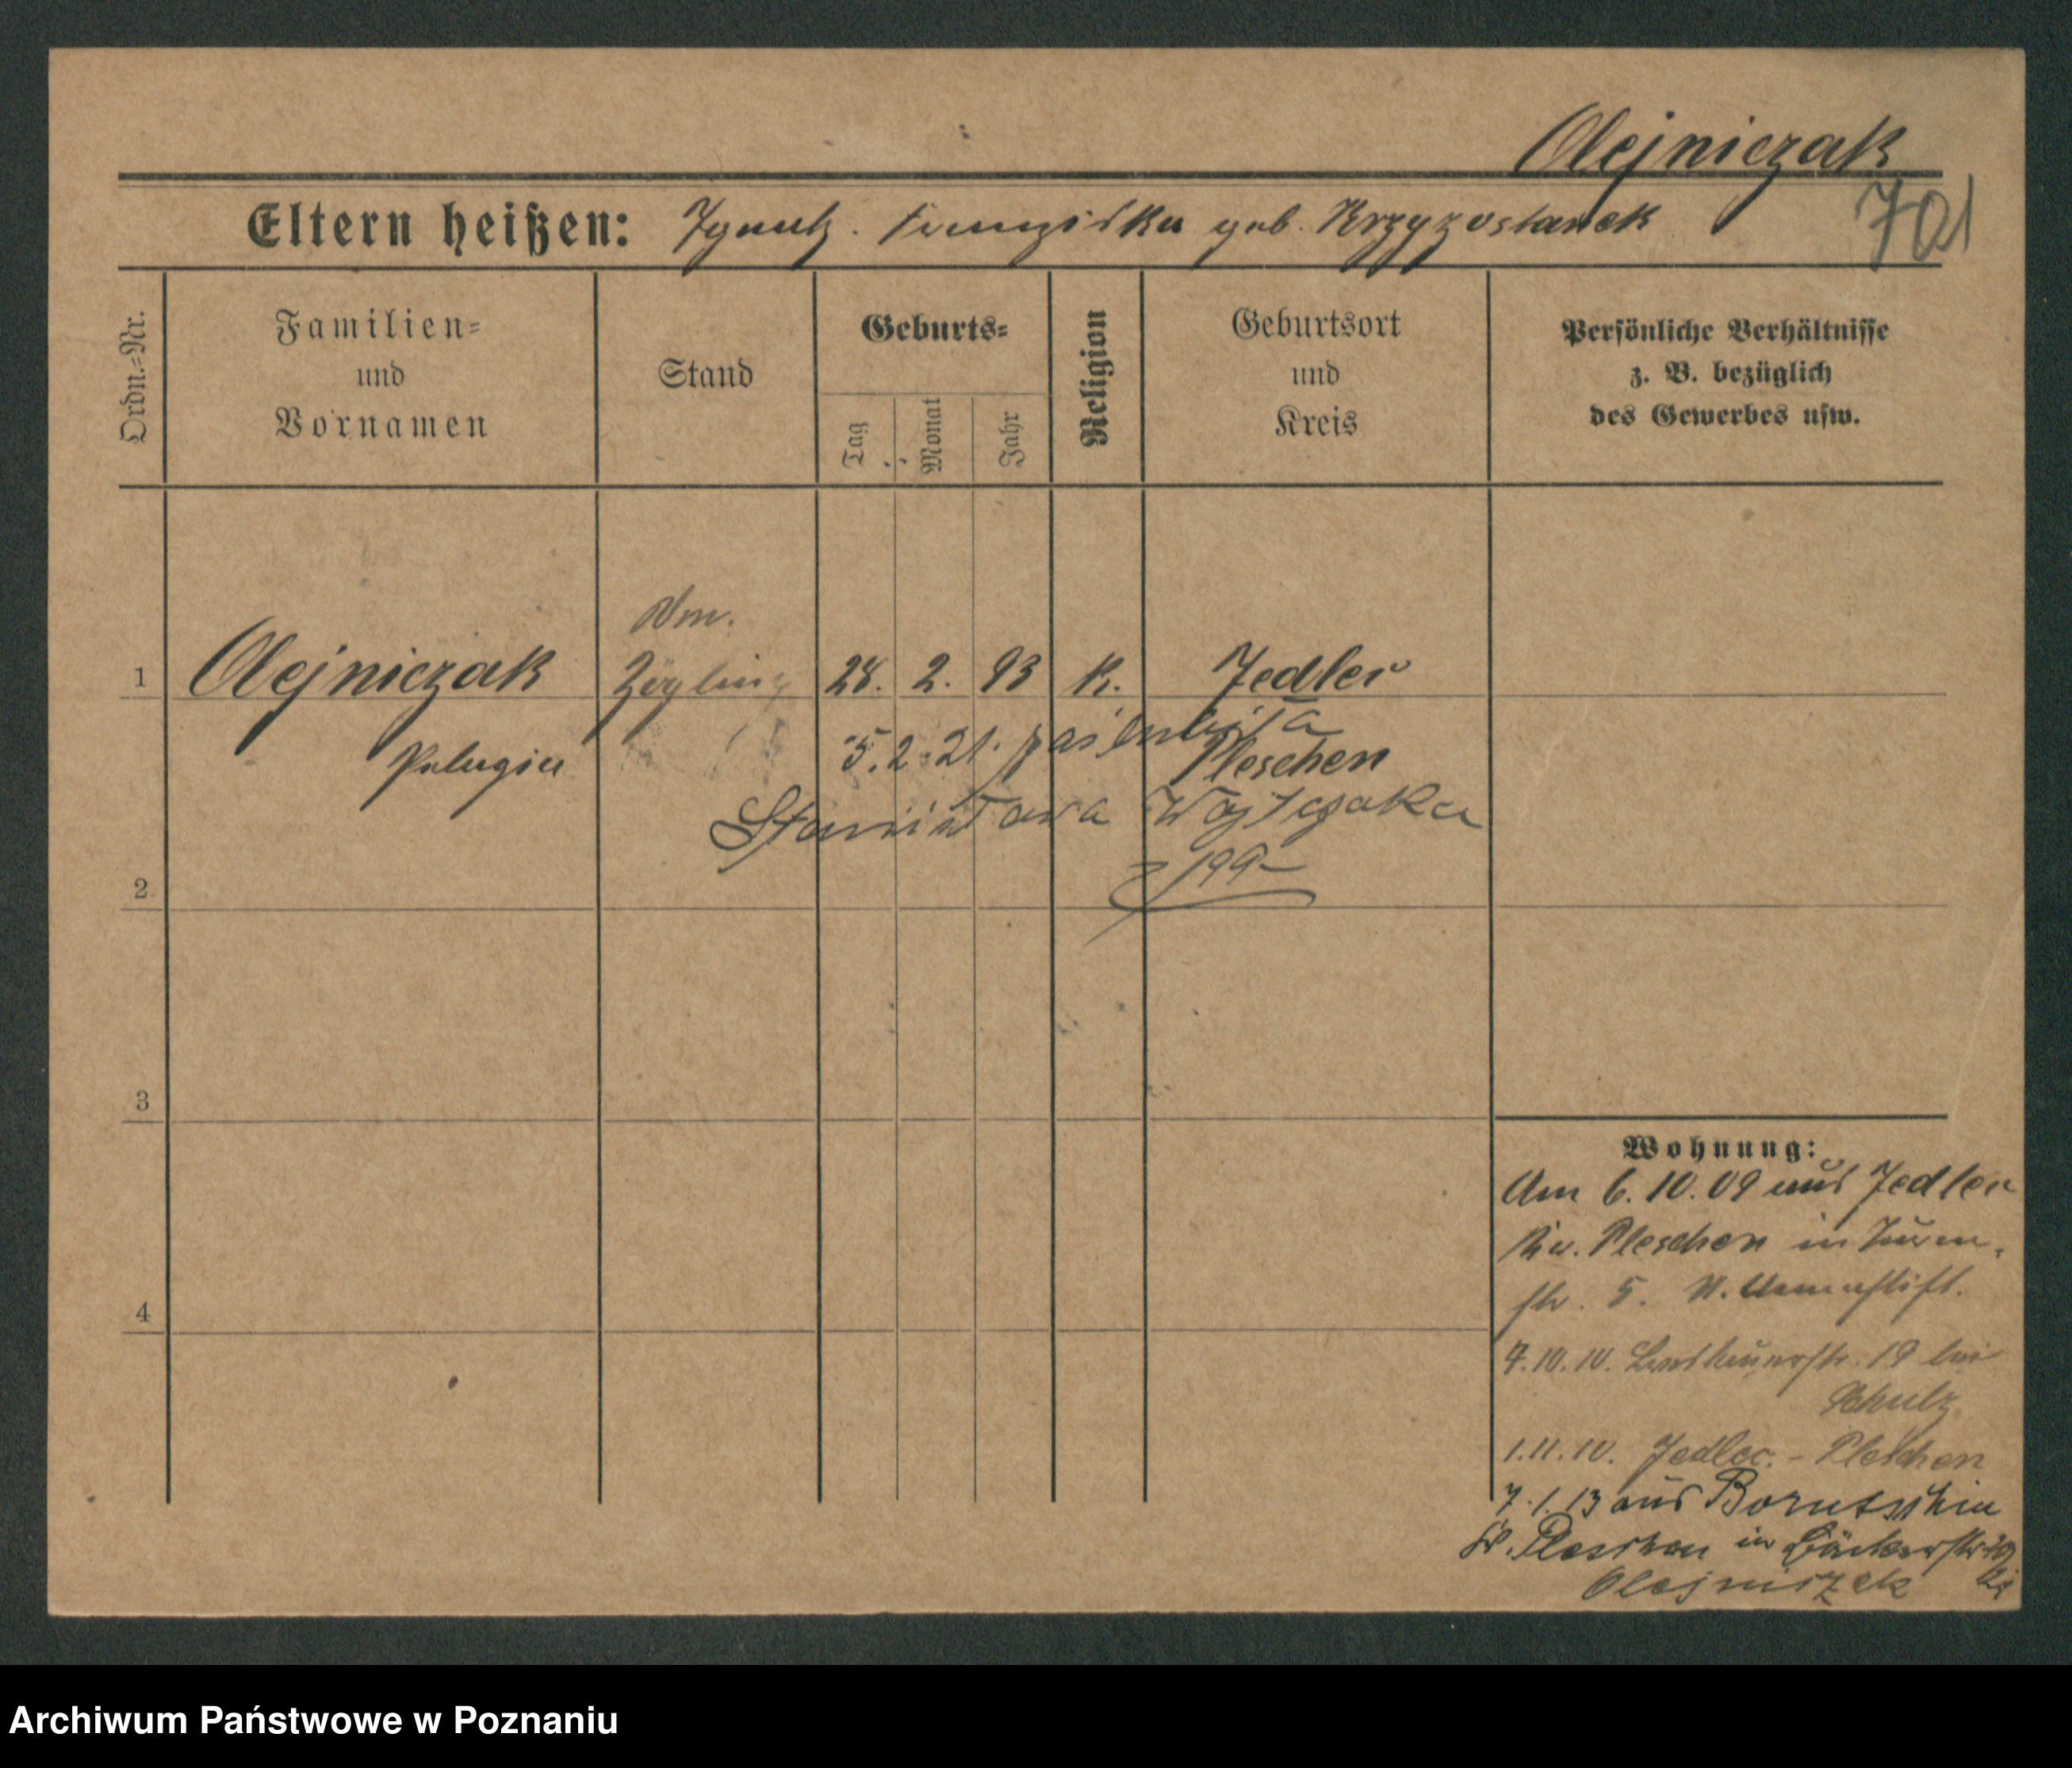 Olejniczak
Eltern heißen: Ignatz. Franziska geb. Krzyzostanek
701
Ordn.=Nr.
Familien=
und
Vornamen
Stand
Geburts=
Tag
Monat
Jahr
Religion
Geburtsort
und
Kreis
Persönliche Verhältnisse
z. B. bezüglich
des Gewerbes usw.
1 Olejniczak Zögling 28. 2. 93 K. Jedlec
Pelagia Pleschen
5.2.21. pasierbica
Stanisława Wojtczaka
2
3
4
Wohnung:
Am 6.10.09 aus Jedlec
Kr. Pleschen in Turm-
str. 5.
7.10.10. 19 bei
Schulz
1.11.10. Jedlec. - Pleschen
7.1.13 aus Borutschin
Kr. Pleschen in Bäckerstr
Olejniczak
Archiwum Państwowe w Poznaniu